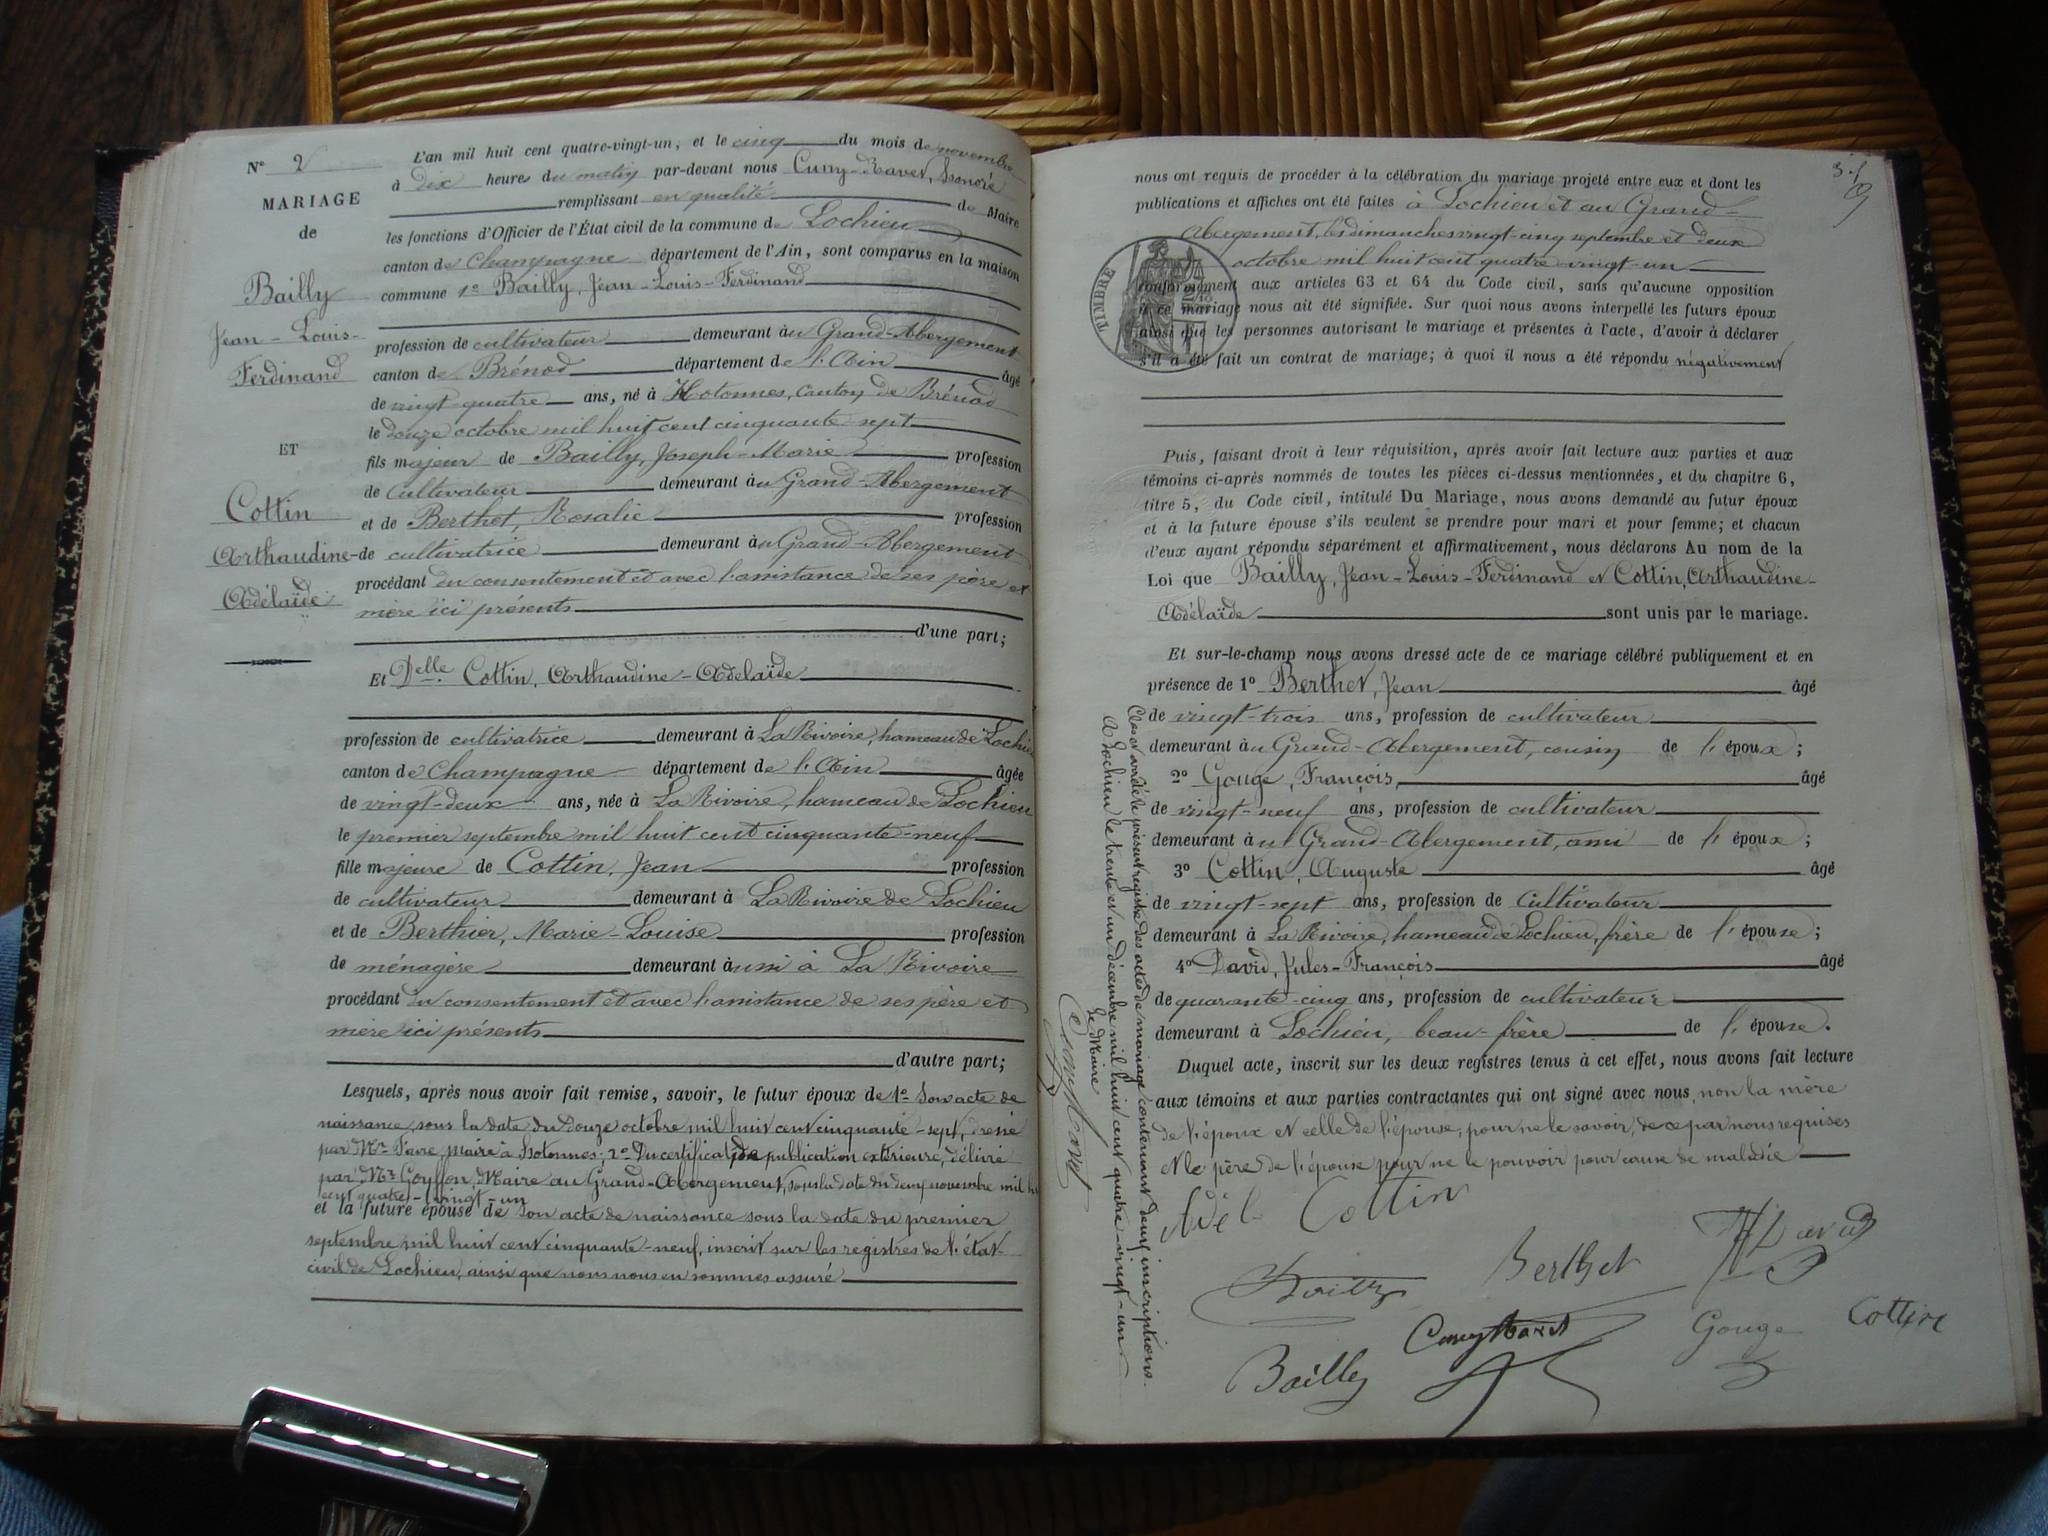 N° 2
MARIAGE
de
Bailly
Jean-Louis-
Ferdinand
ET
Cottin
Arthaudine-
Adélaïde
L'an mil huit cent quatre-vingt-un, et le cinq du mois de novembre
à dix heures du matin par-devant nous Cuny-Ravet, Honoré
remplissant en qualité de Maire
les fonctions d'Officier de l'État civil de la commune de Lochieu
canton de Champagne département de l'Ain, sont comparus en la maison
commune 1° Bailly, Jean-Louis-Ferdinand
profession de cultivateur demeurant au Grand-Abergement
canton de Brénod département de l'Ain âgé
de vingt-quatre ans, né à Hotonnes, canton de Brénod
le douze octobre mil huit cent cinquante-sept
fils majeur de Bailly, Joseph-Marie profession
de cultivateur demeurant au Grand-Abergement
et de Berthet, Rosalie profession
de cultivatrice demeurant au Grand-Abergement
procédant du consentement et avec l'assistance de ses père et
mère ici présents
d'une part;
Et Delle Cottin, Arthaudine-Adélaïde
profession de cultivatrice demeurant à La Rivoire, hameau de Lochieu
canton de Champagne département de l'Ain âgée
de vingt-deux ans, née à La Rivoire, hameau de Lochieu
le premier septembre mil huit cent cinquante-neuf
fille majeure de Cottin, Jean profession
de cultivateur demeurant à La Rivoire de Lochieu
et de Berthier, Marie-Louise profession
de ménagère demeurant aussi à La Rivoire
procédant du consentement et avec l'assistance de ses père et
mère ici présents
d'autre part;
Lesquels, après nous avoir fait remise, savoir, le futur époux de 1° Son acte de
naissance sous la date du douze octobre mil huit cent cinquante-sept, dressé
par Mr Favre, maire à Hotonnes; 2° Du certificat de publication extérieure, délivré
par Mr Goyffon, Maire au Grand-Abergement, sous la date du deux novembre mil huit
cent quatre-vingt-un
et la future épouse de son acte de naissance sous la date du premier
septembre mil huit cent cinquante-neuf, inscrit sur les registres de l'état-
civil de Lochieu, ainsi que nous nous en sommes assuré
nous ont requis de procéder à la célébration du mariage projeté entre eux et dont les
publications et affiches ont été faites à Lochieu et au Grand-
Abergement, les dimanches vingt-cinq septembre et deux
octobre mil huit cent quatre-vingt-un
TIMBRE
conformément aux articles 63 et 64 du Code civil, sans qu'aucune opposition
à ce mariage nous ait été signifiée. Sur quoi nous avons interpellé les futurs époux
ainsi que les personnes autorisant le mariage et présentes à l'acte, d'avoir à déclarer
s'il a été fait un contrat de mariage; à quoi il nous a été répondu négativement
Puis, faisant droit à leur réquisition, après avoir fait lecture aux parties et aux
témoins ci-après nommés de toutes les pièces ci-dessus mentionnées, et du chapitre 6,
titre 5, du Code civil, intitulé Du Mariage, nous avons demandé au futur époux
et à la future épouse s'ils veulent se prendre pour mari et pour femme; et chacun
d'eux ayant répondu séparément et affirmativement, nous déclarons Au nom de la
Loi que Bailly, Jean-Louis-Ferdinand et Cottin, Arthaudine-
Adélaïde sont unis par le mariage.
Et sur-le-champ nous avons dressé acte de ce mariage célébré publiquement et en
présence de 1° Berthet, Jean âgé
de vingt-trois ans, profession de cultivateur
demeurant au Grand-Abergement, cousin de l'époux;
2° Gouge, François, âgé
de vingt-neuf ans, profession de cultivateur
demeurant au Grand-Abergement, ami de l'époux;
3° Cottin, Auguste âgé
de vingt-sept ans, profession de Cultivateur
demeurant à La Rivoire, hameau de Lochieu, frère de l'épouse;
4° David, Jules-François âgé
de quarante-cinq ans, profession de cultivateur
demeurant à Lochieu, beau-frère de l'épouse.
Duquel acte, inscrit sur les deux registres tenus à cet effet, nous avons fait lecture
aux témoins et aux parties contractantes qui ont signé avec nous, non la mère
de l'époux et celle de l'épouse, pour ne le savoir, de ce par nous requises
et le père de l'épouse pour ne le pouvoir pour cause de maladie
Adél Cottin
Berthet
David
Bailly
Cuny Ravet
Gouge
Cottin
Clos et arrêté le présent registre des actes de mariage contenant deux inscriptions.
A Lochieu le trente et un décembre mil huit cent quatre-vingt-un
Le Maire
Cuny Ravet